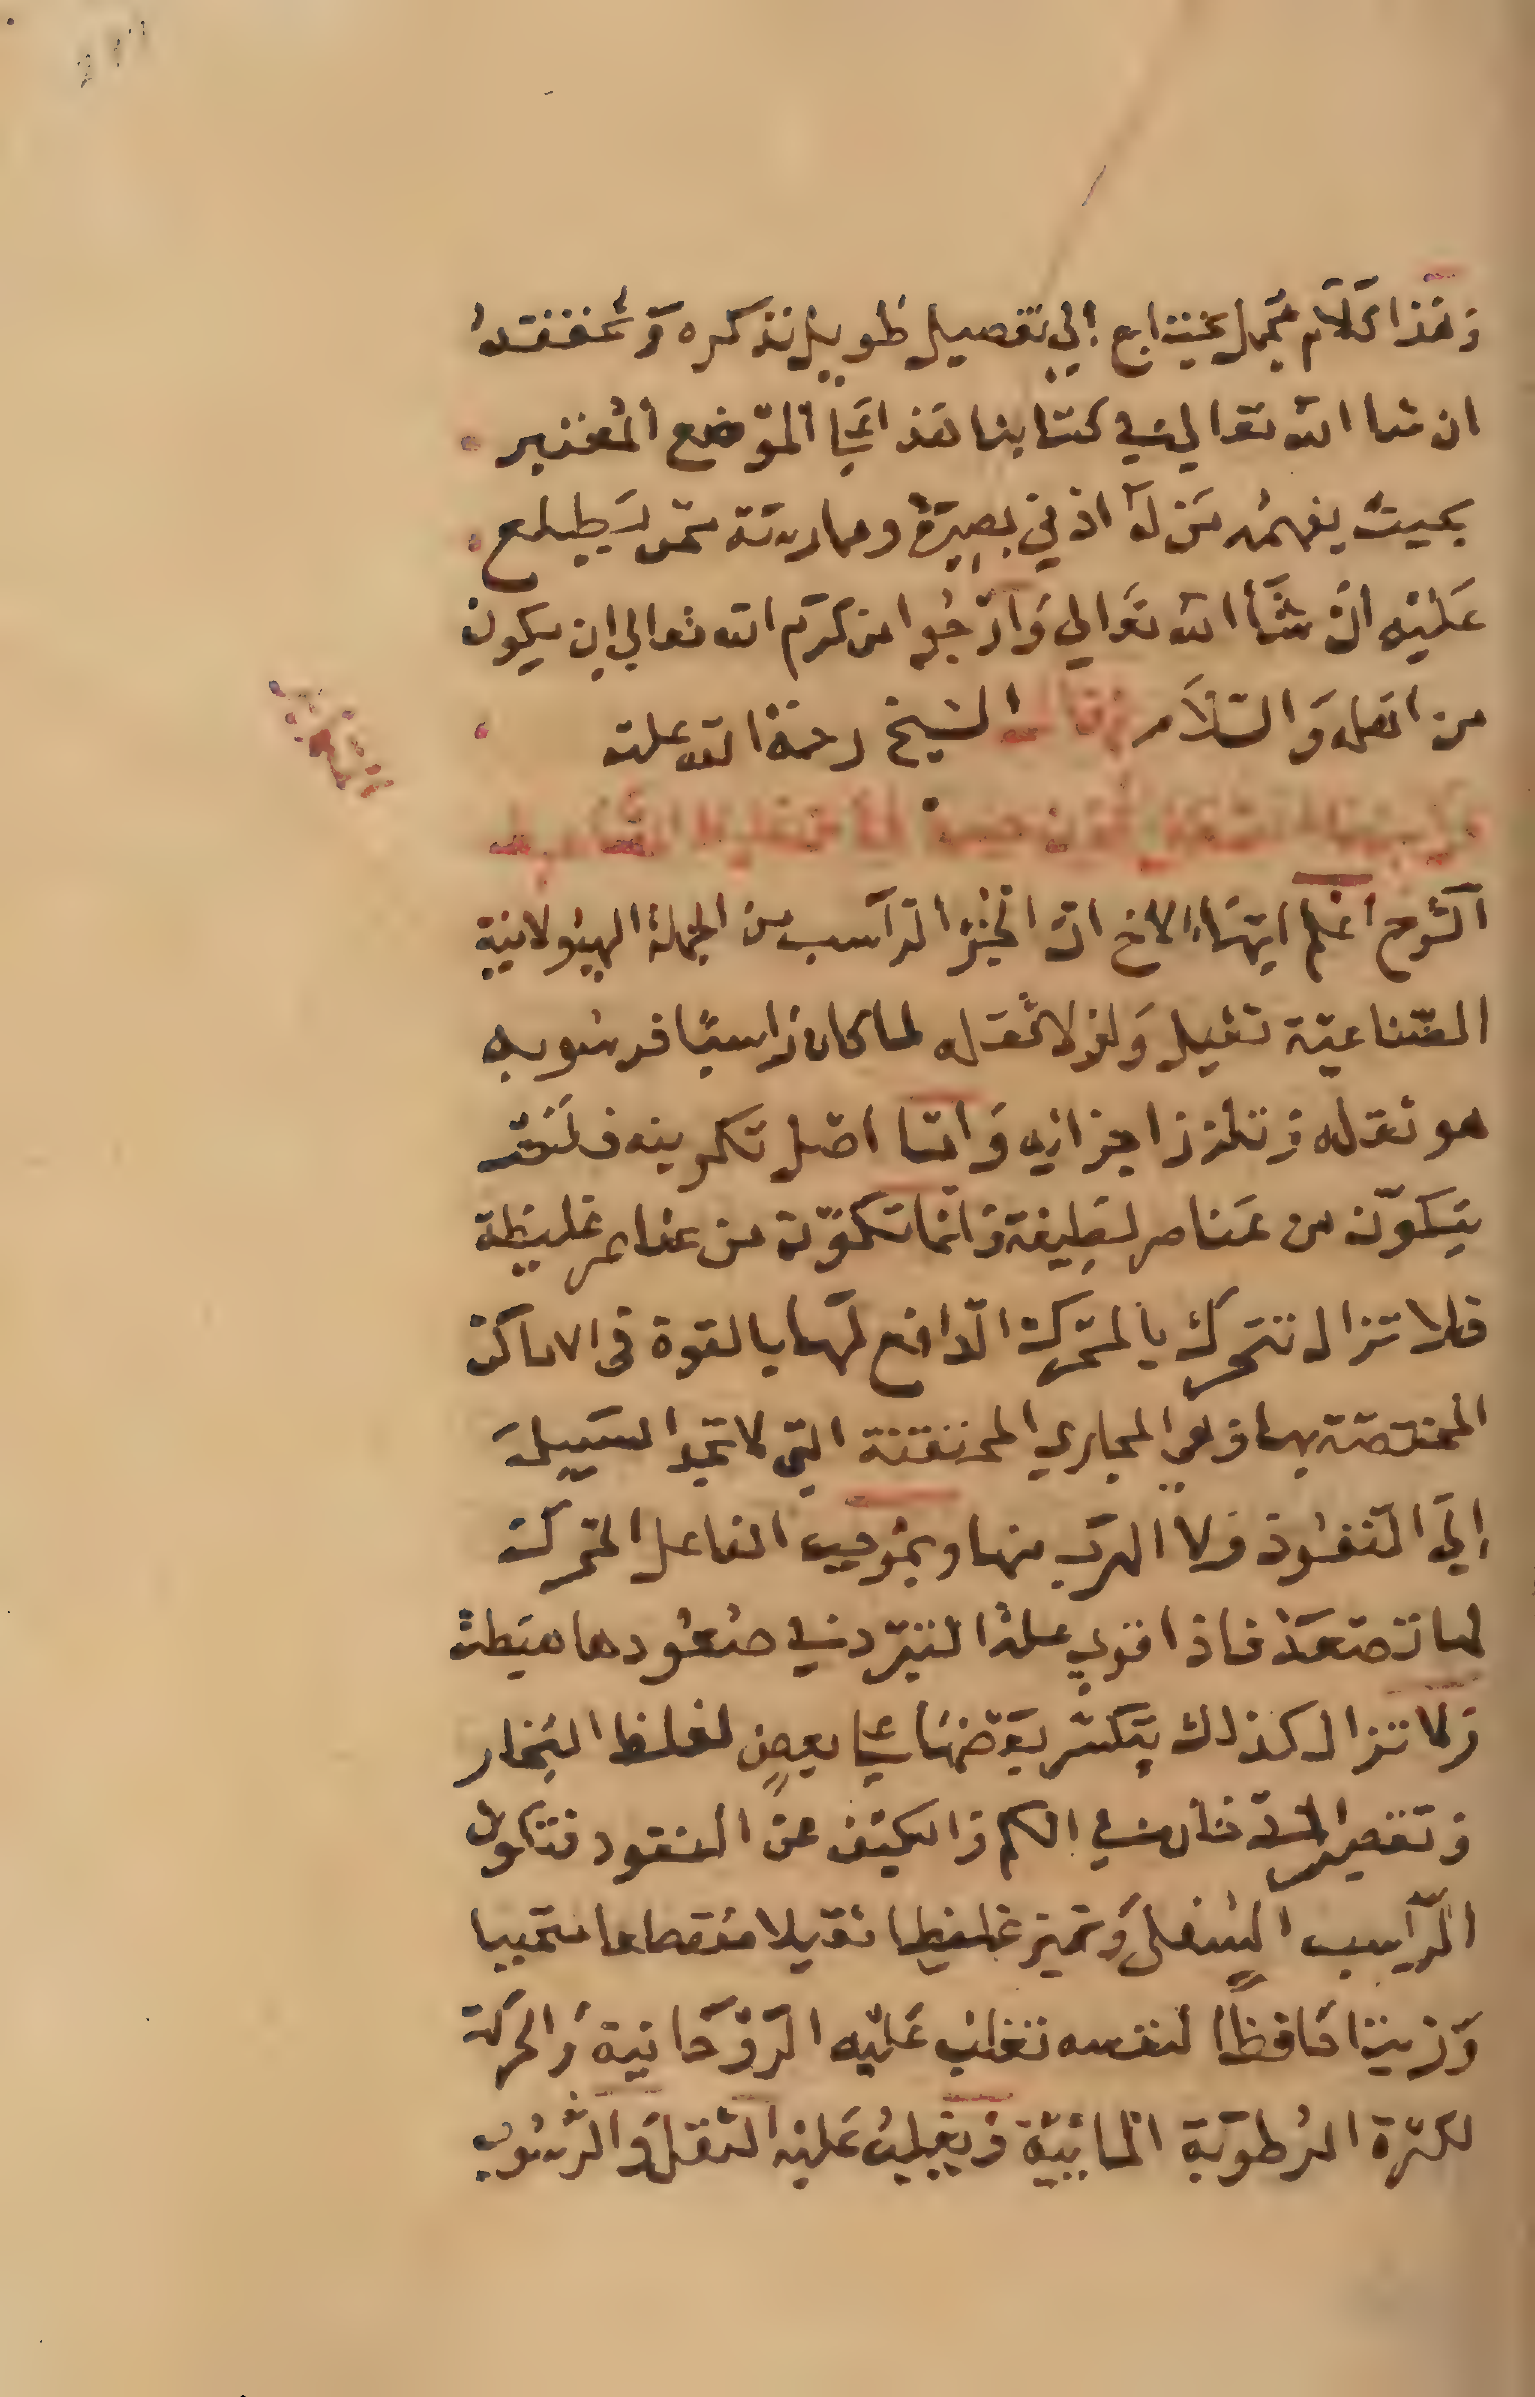 وهذا كلام مجمل يحتاج الي تفصيل طويل نذكره ونحققه
ان شا الله تعالي في كتابنا هذا علي الموضع المعتبر
بحيث يفهمه من له ادني بصيرة وممارسة ممن يطلع
عليه ان شا الله تعالي وارجوا من كرم الله تعالي ان يكون
من اهله والسلام وقال الشيخ رحمة الله عليه
الشرح اعلم ايها الاخ ان الجز الراسب من الجملة الهيولانية
الصناعية ثقيل ولولا ثقله لما كان راسبا فرسوبه
هو ثقله وتلزز اجزايه واما اصل تكوينه فلم
يتكون من عناصر لطيفة وانما تكون من عناصر غليظة
فلا تزال تتحرك بالمحركة الدافع لها بالقوة في الاماكن
المختصة بها وهي المجاري المحتقنة التي لا تجد السبيل
الي النفوذ ولا الهرب منها وبموجب الفاعل المحركة
لها تصعد فاذا قوي عليها التبرد في صعودها هبطت
ولا تزال كذلك يتكسر بعضها علي بعض لغلظ البخار
وتقصير الدخان في الكم والكيف عن النفود فتكون
الراسب السفلي وتميز غليظا ثقيلا
ورزينا حافظا لنفسه تغلب عليه الروحانية والحركة
لكثرة الرطوبة المائية ويغلب عليه الثقل والرسوب